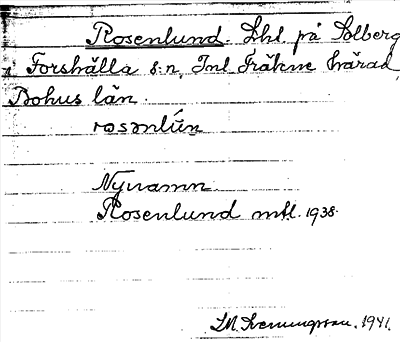 Rosenlund. Lhl på Solberg
i Forshälla s:n, Inl. Fräkne härad,
Bohus län.
rosənlún
Nynamn
Rosenlund mtl. 1938.
SM. Svenungsson. 1941.